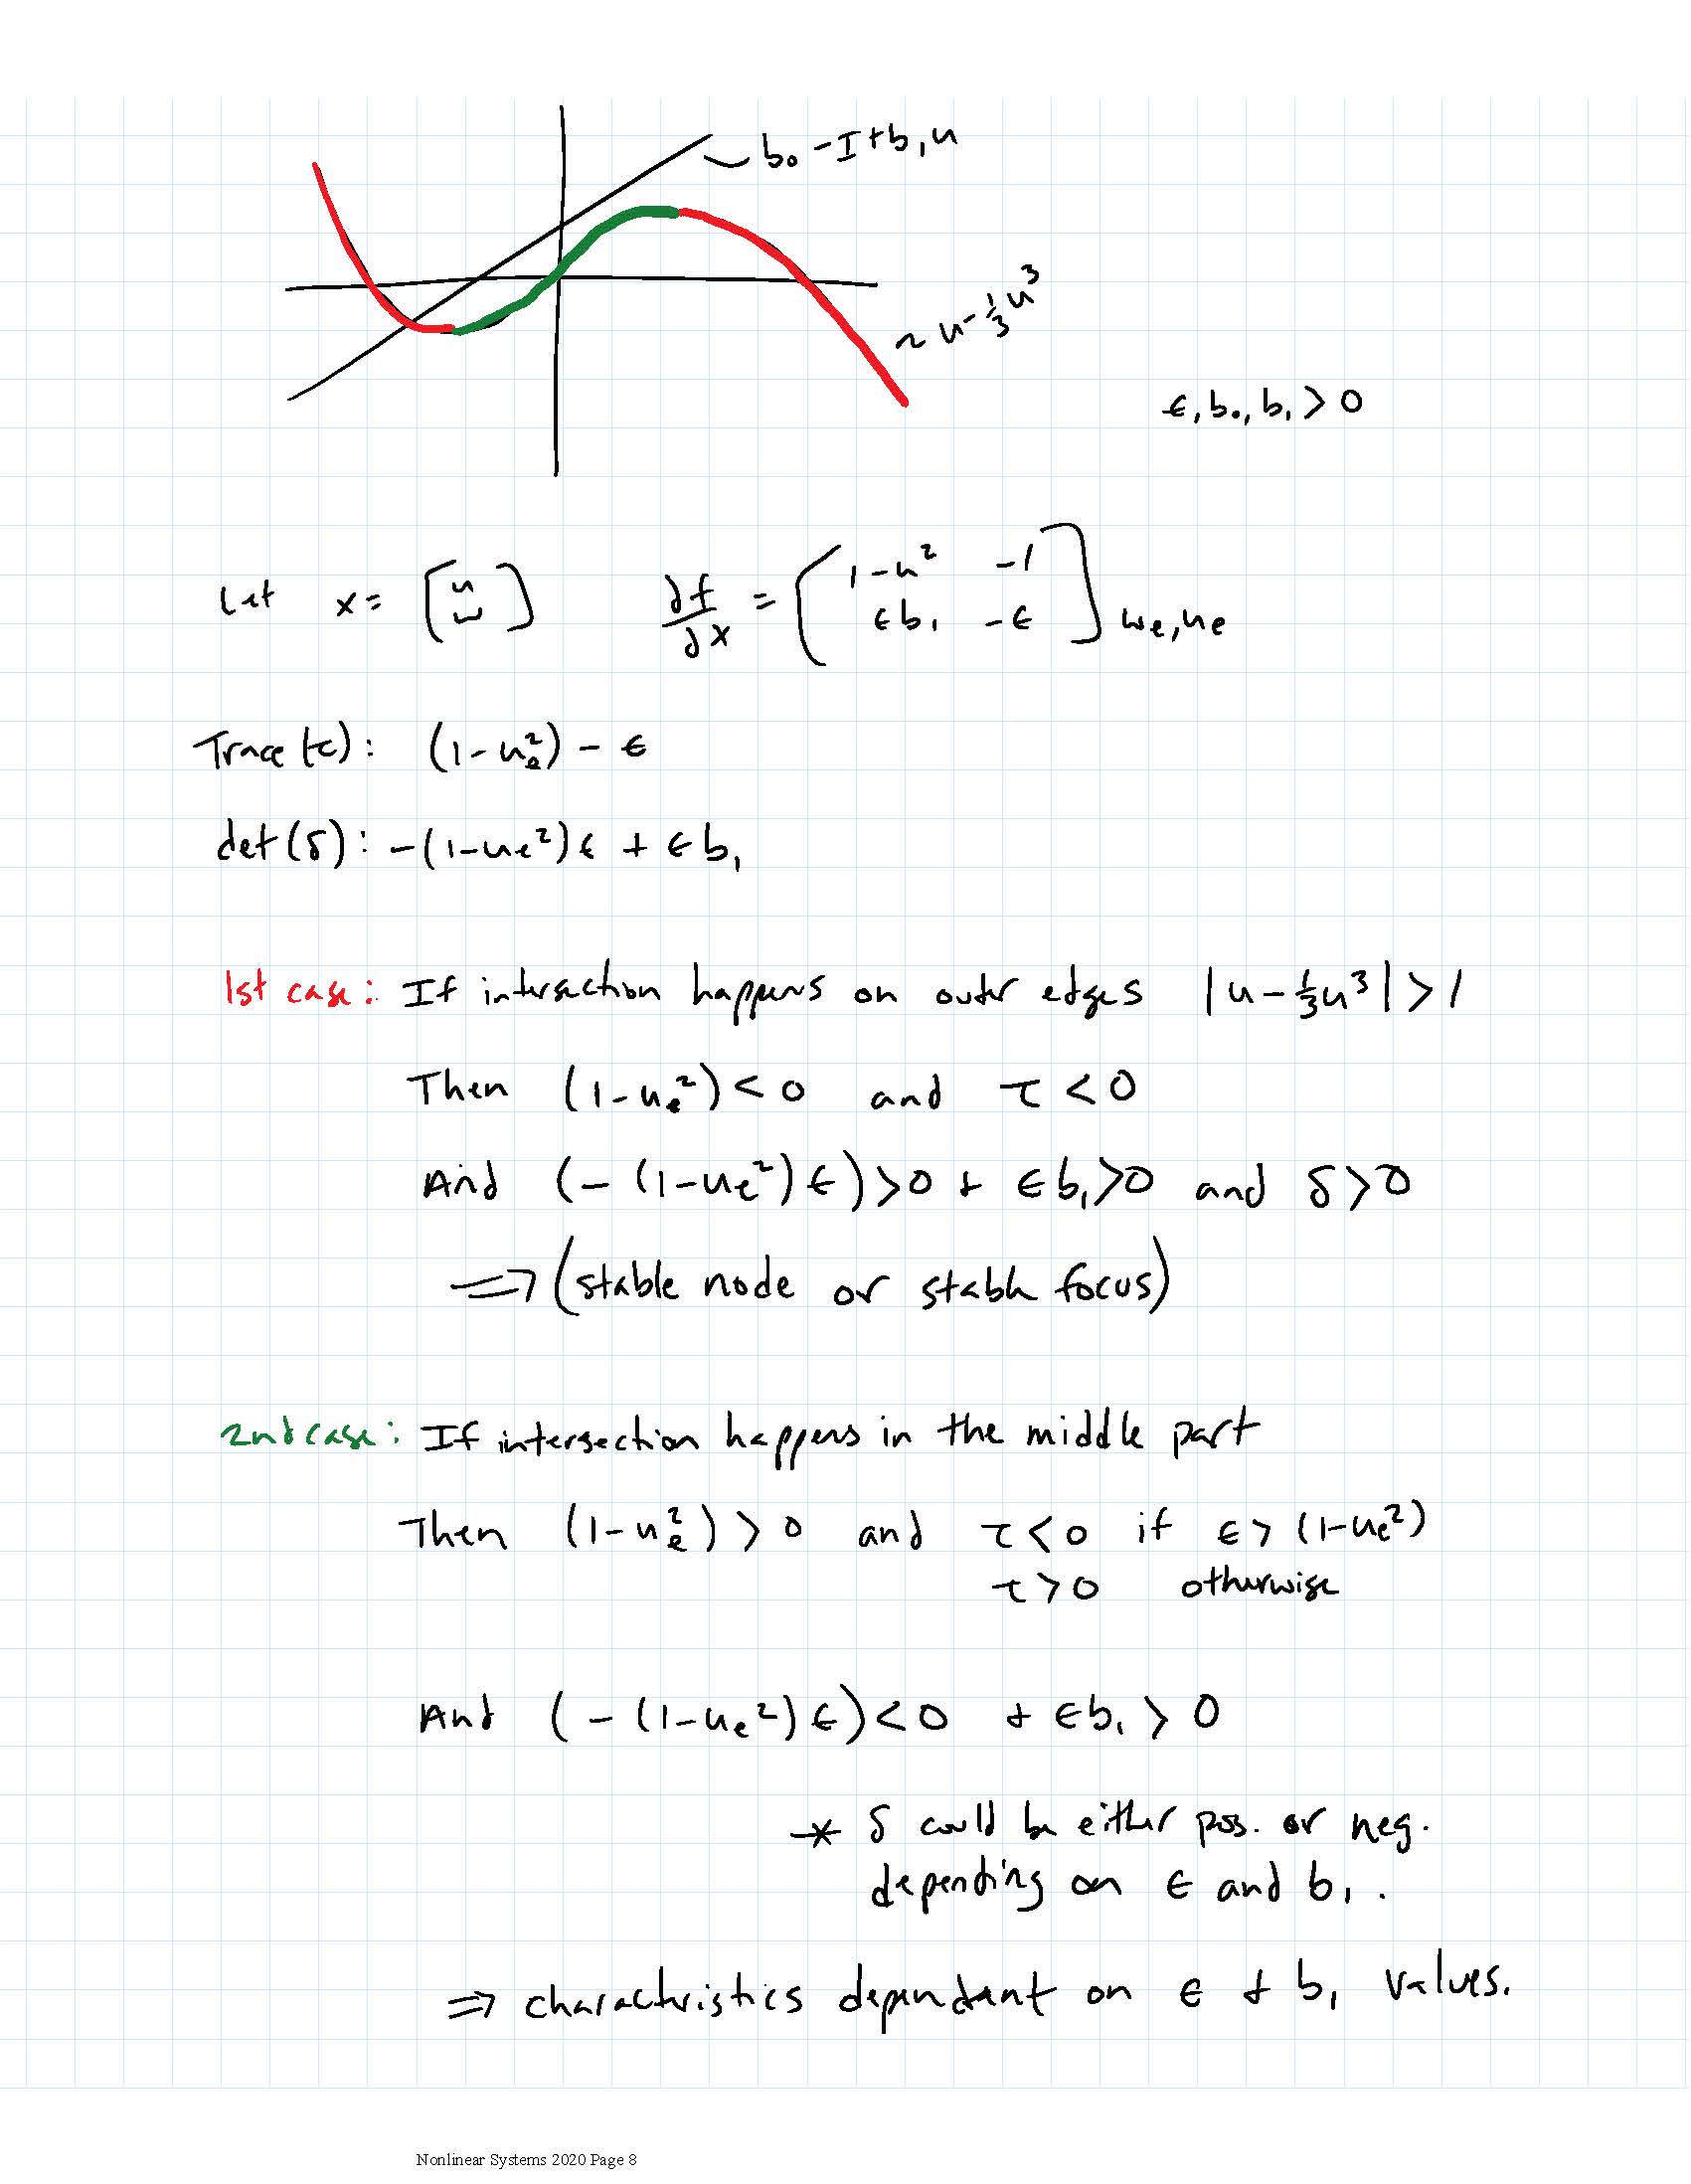 b₀ - I + b₁u
~ u - ⅓u³
ϵ, b₀, b₁ > 0
Let x = [u w] ∂f/∂x = [1-u² -1 ϵb₁ -ϵ] wₑ,uₑ
Trace (τ): (1-uₑ²) - ϵ
det(δ): -(1-uₑ²)ϵ + ϵb₁
1st case: If intersection happens on outer edges |u - ⅓u³| > 1
Then (1-uₑ²) < 0 and τ < 0
And (-(1-uₑ²)ϵ) > 0 + ϵb₁ > 0 and δ > 0
⇒ (stable node or stable focus)
2nd case: If intersection happens in the middle part
Then (1-uₑ²) > 0 and τ < 0 if ϵ > (1-uₑ²)
τ > 0 otherwise
And (-(1-uₑ²)ϵ) < 0 + ϵb₁ > 0
* δ could be either pos. or neg.
depending on ϵ and b₁.
⇒ characteristics dependant on ϵ + b₁ values.
Nonlinear Systems 2020 Page 8